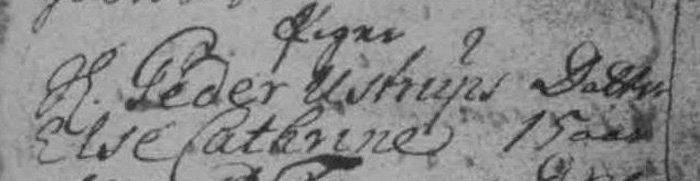 Piger
H. Peder Ustrups Datter
Else Cathrine 15 aar